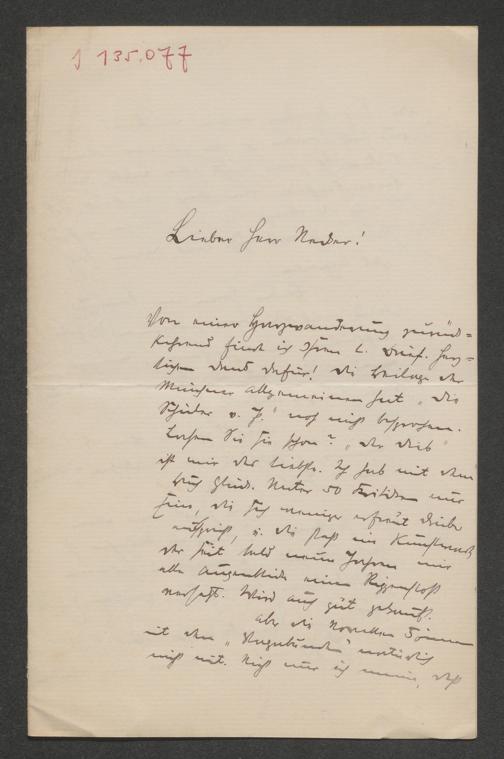 J 135.077
Lieber Herr Necker!
Von einer Harzwanderung zurück-
kehrend finde ich Ihren l. Brief. Herz-
lichen Dank dafür! Die Beilage der
Münchner Allgemeinen hat "Die
Schüler v. P." noch nicht besprochen.
Lasen Sie sie schon? "Der Dieb"
ist mir der liebste. Ich hab mit dem
Buch Glück. Unter 50 Kritiken nur
eine, die sich weniger erfreut drüber
ausspricht, u. die ist ein
der seit bald neun Jahren mir
alle Augenblicke einen Rippenstoß
versetzt. Wird auch gut gekauft.
Aber die Novellen können
mit den "Vagabunden" natürlich
nicht mit. Nicht nur ich meine, daß